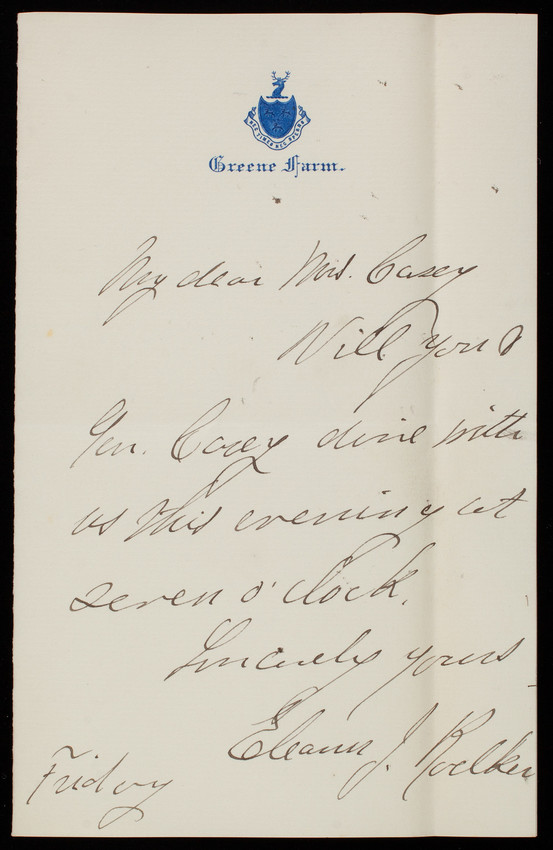 NEC TIMEO NEC SPERNO
Greene Farm.
My dear Mrs. Casey
Will you &
Gen. Casey dine with
us this evening at
seven o'clock.
Sincerely yours
Eleanor J. Roelker
Friday